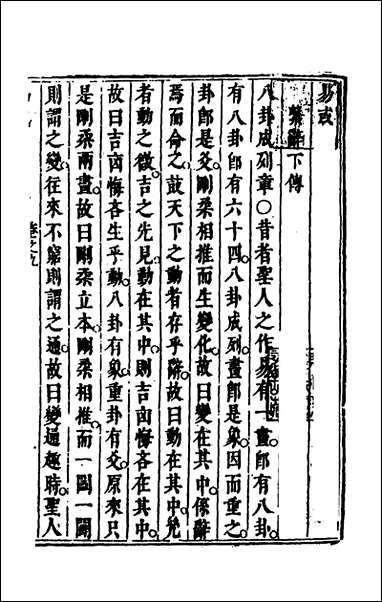 易或
繫辭下傳
八卦成列章○昔者聖人之作易有一畫即有八卦
有八卦即有六十四八卦成列畫即是象因而重之
卦即是爻剛柔相推而生變化故曰變在其中係辭
焉而命之鼓天下之動者存乎辭故曰動在其中
者動之徵吉之先見動在其中則吉凶悔吝在其中
故曰吉凶悔吝生乎動八卦有象重卦有爻原來只
是剛柔兩畫故曰剛柔立本剛柔相推而一闔一闢
則謂之變往來不窮則謂之通故曰變通趣時聖人
卷之九